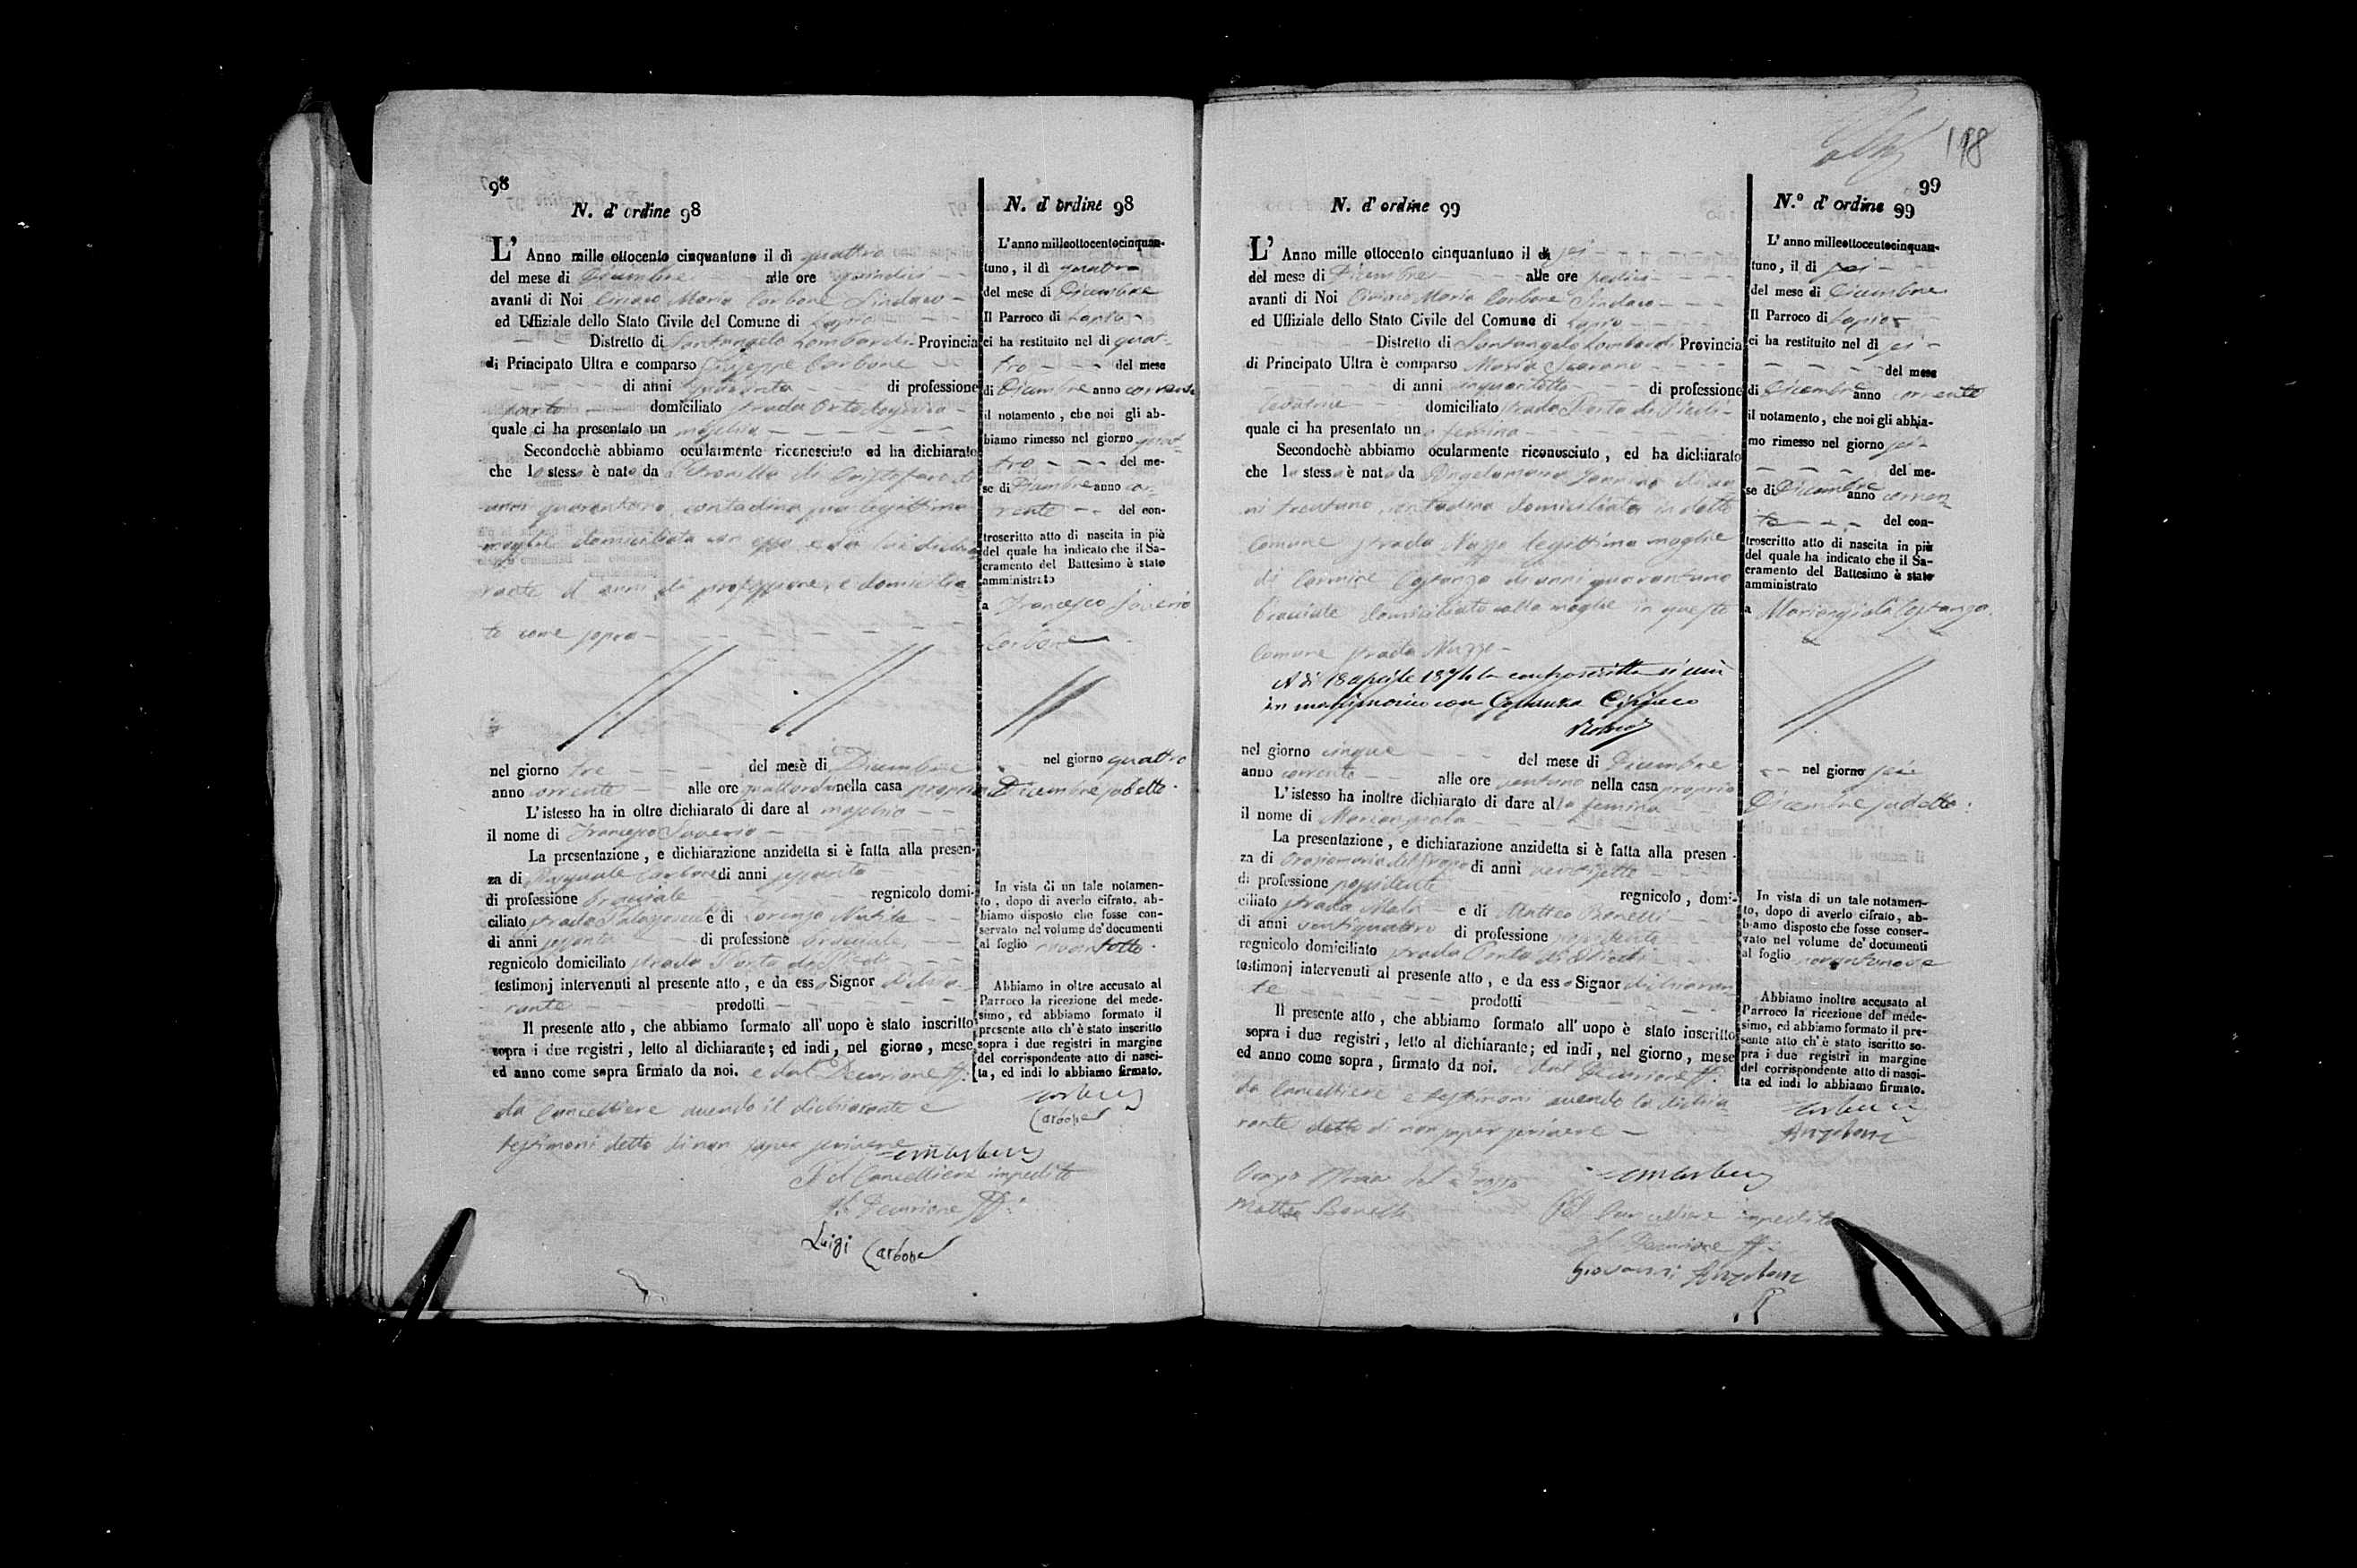 98
N. d' ordine 98
L' Anno mille ottocento cinquantuno il dì quattro
del mese di Dicembre alle ore quindici
avanti di Noi Ciriaco Maria Carbone Sindaco
ed Uffiziale dello Stato Civile del Comune di Lapio
Distretto di Santangelo Lombardi Provincia
di Principato Ultra e comparso Giuseppe Carbone
di anni quaranta di professione
sarto domiciliato strada
quale ci ha presentato un maschio
Secondochè abbiamo ocularmente riconosciuto ed ha dichiarato
che lo stesso è nato da Petronilla di Cristofaro di
anni quarantuno, contadina sua legittima
moglie domiciliata con esso e da lui dichia
rante d'anni, di professione, e domicilia
to come sopra
nel giorno tre del mesè di Dicembre
anno corrente alle ore quattordici nella casa propria
L'istesso ha in oltre dichiarato di dare al maschio
il nome di Francesco Saverio
La presentazione, e dichiarazione anzidetta si è fatta alla presen-
za di Pasquale Carbone di anni sessanta
di professione bracciale regnicolo domi-
ciliato strada e di Lorenzo
di anni sessanta di professione bracciale
regnicolo domiciliato strada Porta di
testimonj intervenuti al presente atto, e da esso Signor dichia-
rante prodotti
Il presente atto, che abbiamo formato all' uopo è stato inscritto
sopra i due registri, letto al dichiarante; ed indi, nel giorno, mese
ed anno come sopra firmato da noi. e dal Decurione ff.
da Cancelliere avendo il dichiarante e
testimoni detto di non saper scrivere
Pel Cancelliere impedito
Il Decurione ff.
Luigi Carbone
N. d' ordine 98
L'anno milleottocentocinquan-
tuno, il dì quattro
del mese di Dicembre
Il Parroco di Lapio
ci ha restituito nel dì quat-
tro del mese
di Dicembre anno corrente
il notamento, che noi gli ab-
biamo rimesso nel giorno quat-
tro del me-
se di Dicembre anno cor-
rente del con-
troscritto atto di nascita in più
del quale ha indicato che il Sa-
cramento del Battesimo è stato
amministrato
a Francesco Saverio
Carbone
nel giorno quattro
Dicembre sudetto.
In vista di un tale notamen-
to, dopo di averlo cifrato, ab-
biamo disposto che fosse con-
servato nel volume de' documenti
al foglio novantotto.
Abbiamo in oltre accusato al
Parroco la ricezione del mede-
simo, ed abbiamo formato il
presente atto ch'è stato inscritto
sopra i due registri in margine
del corrispondente atto di nasci-
ta, ed indi lo abbiamo firmato.
Carbone
198
99
N. d' ordine 99
L' Anno mille ottocento cinquantuno il dì sei
del mese di Dicembre alle ore sedici
avanti di Noi Ciriaco Maria Carbone Sindaco
ed Uffiziale dello Stato Civile del Comune di Lapio
Distretto di Santangelo Lombardi Provincia
di Principato Ultra è comparso Maria
di anni cinquantotto di professione
levatrice domiciliato strada Porta di
quale ci ha presentato una femina
Secondochè abbiamo ocularmente riconosciuto, ed ha dichiarato
che la stessa è nata da Angelamaria di an
ni trentuno, contadina domiciliata in detto
Comune strada Mazze legittima moglie
di Carmine Costanza di anni quarantuno
bracciale domiciliato colla moglie in questo
Comune strada Mazze
A dì 18 aprile 1874 la controscritta si unì
in matrimonio con Costanza Ciriaco
nel giorno cinque del mese di Dicembre
anno corrente alle ore ventuno nella casa propria
L'istesso ha inoltre dichiarato di dare alla femina
il nome di Mariangiola
La presentazione, e dichiarazione anzidetta si è fatta alla presen-
za di Oraziomaria del Grosso di anni
di professione possidente regnicolo, domi-
ciliato strada e di Matteo Bonelli
di anni ventiquattro di professione possidente
regnicolo domiciliato strada Porta di
testimonj intervenuti al presente atto, e da esso Signor dichiaran-
te prodotti
Il presente atto, che abbiamo formato all' uopo è stato inscritto
sopra i due registri, letto al dichiarante; ed indi, nel giorno, mese
ed anno come sopra, firmato da noi. e dal Decurione ff.
da Cancelliere e testimoni avendo la dichia-
rante detto di non saper scrivere
Orazio Maria del Grosso
Matteo Bonelli
Pel Cancelliere impedito
Il Decurione ff.
Giovanni
N.° d' ordine 99
L' anno milleottocentocinquan-
tuno, il dì sei
del mese di Dicembre
Il Parroco di Lapio
ci ha restituito nel dì sei
del mese
di Dicembre anno corrente
il notamento, che noi gli abbia-
mo rimesso nel giorno sei
del me-
se di Dicembre anno corren-
te del con-
troscritto atto di nascita in più
del quale ha indicato che il Sa-
cramento del Battesimo è stato
amministrato
a Mariangiola Costanza
nel giorno sei
Dicembre sudetto.
In vista di un tale notamen-
to, dopo di averlo cifrato, ab-
biamo disposto che fosse conser-
vato nel volume de' documenti
al foglio novantanove
Abbiamo inoltre accusato al
Parroco la ricezione del mede-
simo, ed abbiamo formato il pre-
sente atto ch'è stato iscritto so-
pra i due registri in margine
del corrispondente atto di nasci-
ta ed indi lo abbiamo firmato.